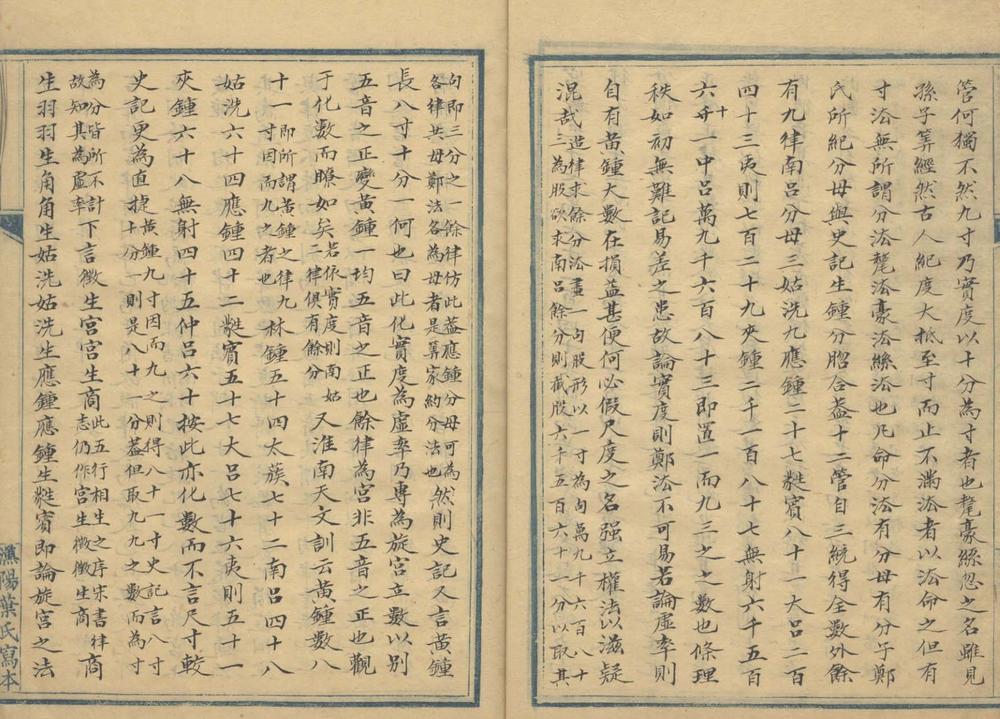 管何獨不然九寸乃實度以十分為寸者也氂豪絲忽之名雖見
孫子筭經然古人紀度大抵至寸而止不滿法者以法命之但有
寸法無所謂分法氂法豪法絲法也凡命分法有分母有分子鄭
氏所紀分母與史記生鍾分脗合葢十二管自三統得全數外餘
有九律南呂分母三姑洗九應鍾二十七蕤賓八十一大呂二百
四十三夷則七百二十九夾鍾二千一百八十七無射六千五百
六十一中呂萬九千六百八十三即置一而九三之之數也條理
秩如初無難記易差之患故論實度則鄭法不可易若論虛率則
自有黃鍾大數在損益甚便何必假尺度之名强立權法以滋疑
混哉造律求餘分法畫一句股形以一寸為句萬九千六百八十
三為股欲求南呂餘分則截股六千五百六十一分以取其
句即三分之一餘律仿此葢應鍾分母可為
各律共母鄭法各為母者是筭家約分法也然則史記又言黃鍾
長八寸十分一何也曰此化實度為虛率乃專為旋宮立數以別
五音之正變黃鍾一均五音之正也餘律為宮非五音之正也觀
于化數而瞭如矣若依實度則南姑
二律俱有餘分又淮南天文訓云黃鍾數八
十一即所謂黃鍾之律九
寸因而九之者也林鍾五十四太蔟七十二南呂四十八
姑洗六十四應鍾四十二蕤賓五十七大呂七十六夷則五十一
夾鍾六十八無射四十五仲呂六十按此亦化數而不言尺寸較
史記更為直捷黃鍾九寸因而九之則得八十一寸史記言八寸
十分一則是八十一分葢但取九九之數而為寸
為分皆所不計
故知其為虛率下言徵生宮宮生商此五行相生之序宋書律
志仍作宮生徵徵生商商
生羽羽生角角生姑洗姑洗生應鍾應鍾生蕤賓即論旋宮之法
漁陽葉氏寫本